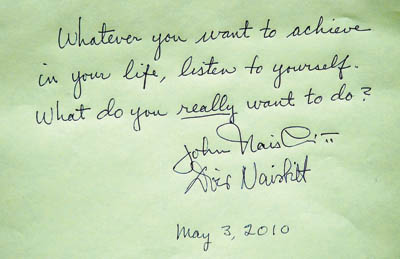 Whatever you want to achieve
in your life, listen to yourself.
What do you really want to do?
John Naisbitt
Doris Naisbitt
May 3, 2010